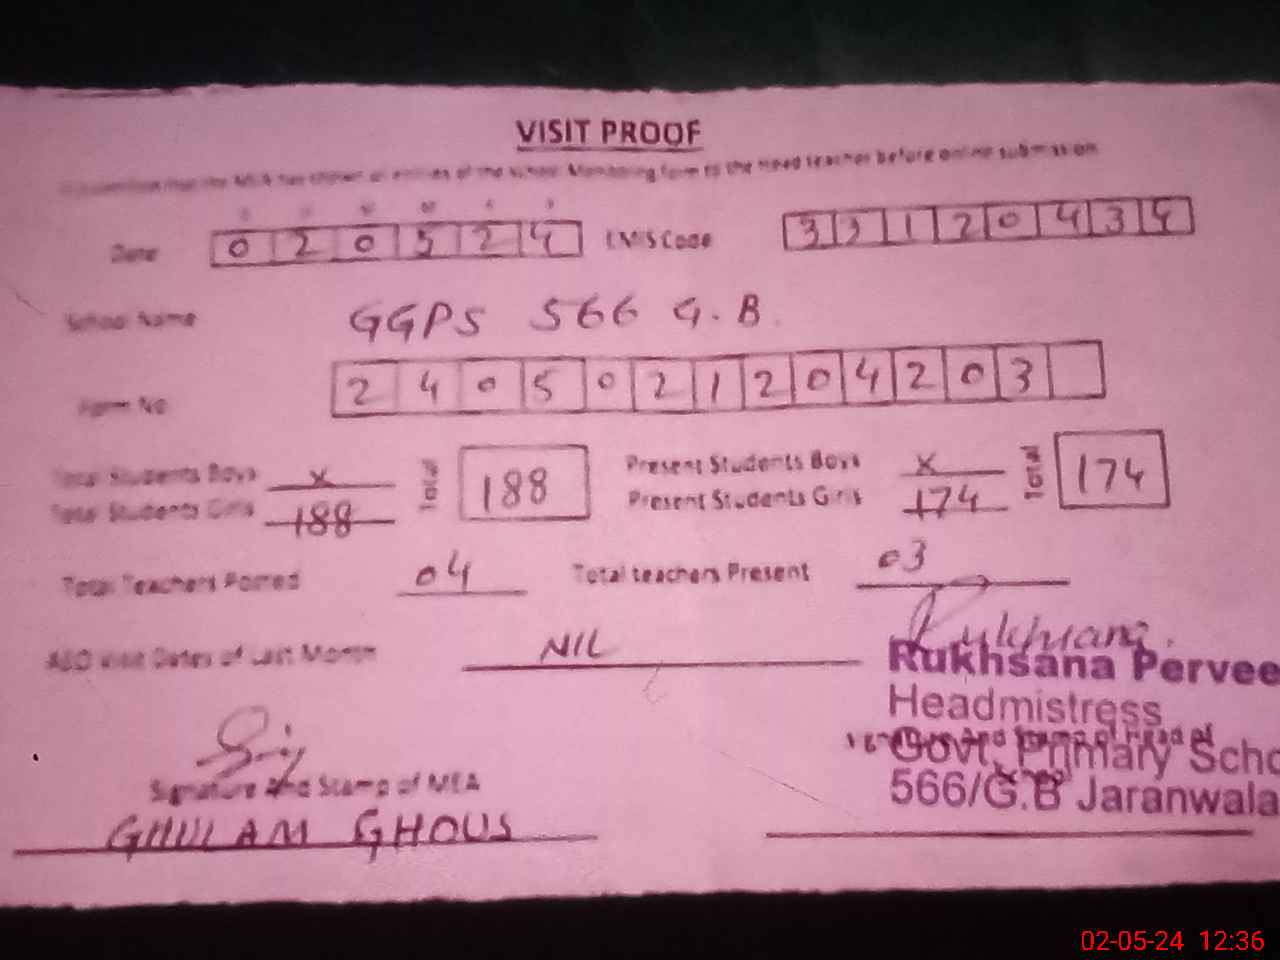 VISIT PROOF
that the MEA has shown all entries of the school Monitoring form to the Head teacher before online submission
Date 0 2 0 5 2 4 EMIS Code 3 3 1 2 0 4 3 4
School Name GGPS 566 G.B
Form No 2 4 0 5 0 2 1 2 0 4 2 0 3
Total Students Boys x Total 188 Present Students Boys x Total 174
Total Students Girls 188 Present Students Girls 174
Total Teachers Posted 04 Total teachers Present 03
Visit Dates of Last Month NIL
Rukhsana.
Rukhsana Pervee
Headmistress
Govt. Primary Scho
566/G.B Jaranwala
Signature and Stamp of MEA
GHULAM GHOUS
02-05-24 12:36